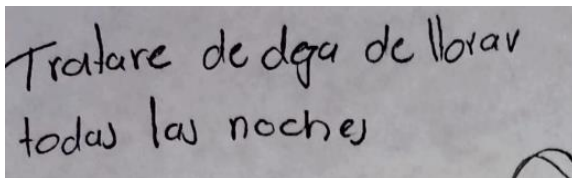 Tratare de deja de llorar
todas las noches